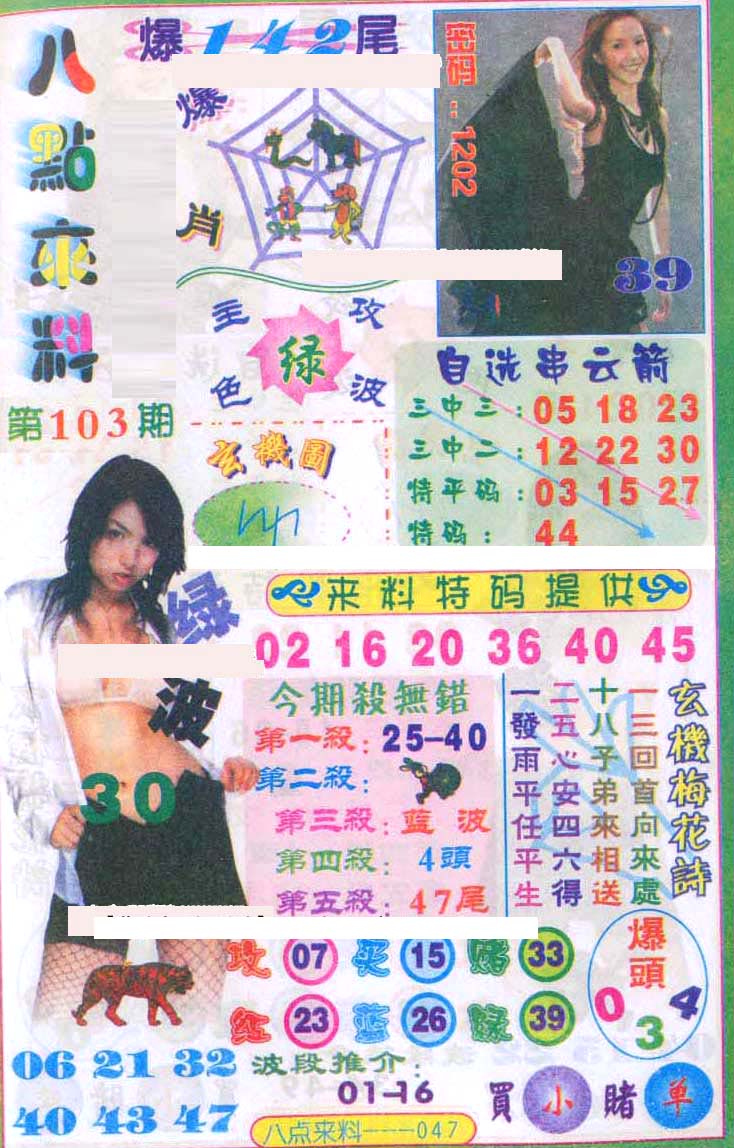 八點來料
第103期
爆142尾
爆肖
密码:1202
39
主攻
绿
色波
玄機圖
自选串云箭
三中三:05 18 23
三中二:12 22 30
特平码:03 15 27
特码:44
绿波
30
来料特码提供
02 16 20 36 40 45
今期殺無錯
第一殺:25-40
第二殺:
第三殺:蓝波
第四殺:4頭
第五殺:47尾
玄機梅花詩
一三回首向來處
十八子弟來相送
二五心安四六得
一發雨平任平生
攻 07 买 15 赌 33
红 23 蓝 26 绿 39
爆頭
0 3 4
06 21 32
40 43 47
波段推介:
01-16
買小賭单
八点来料---047